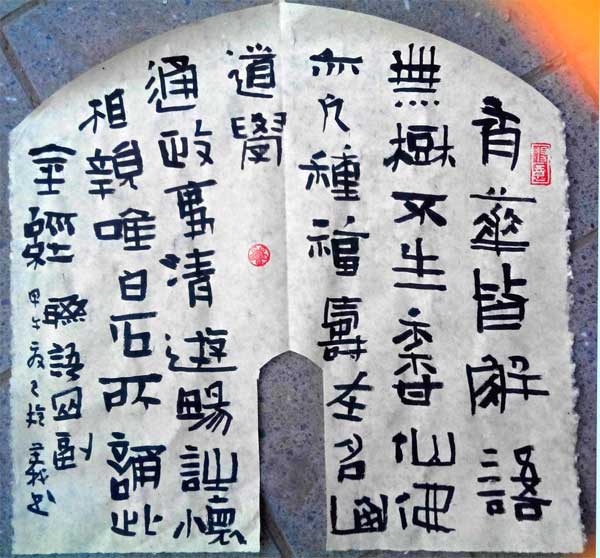 有華皆解語
無樹不生香仙佛
凡種福壽在名
道學
通政事清遊暢詠懷
相親唯白石所誦此
金經聯語四副
甲午